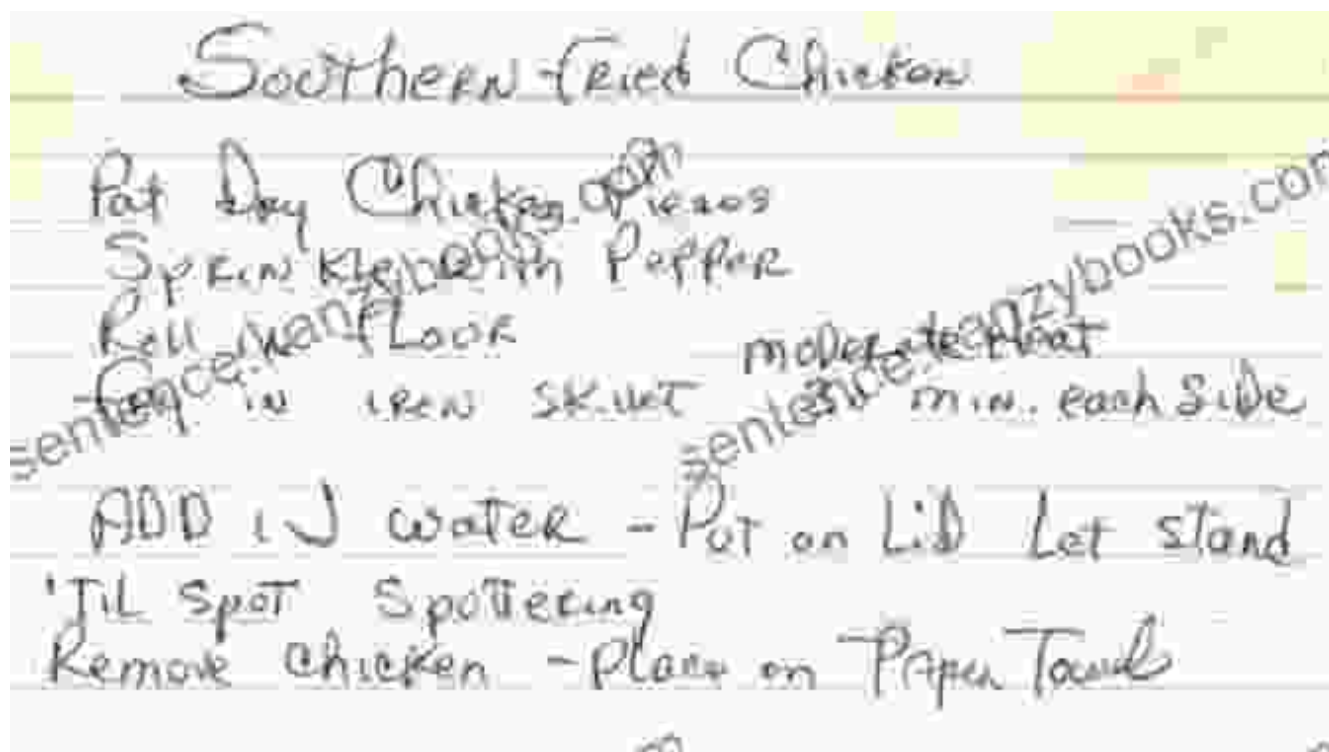 Southern Fried Chicken
Pat Dry Chicken Pieces
Sprinkle with Pepper
Roll in Flour
moderate heat
Fry in iron skillet min. each side
ADD water - Put on Lid Let stand
'TIL Spot Spottering
Remove chicken - Place on Paper Towels
sentence.kanzybooks.com
sentence.kanzybooks.com